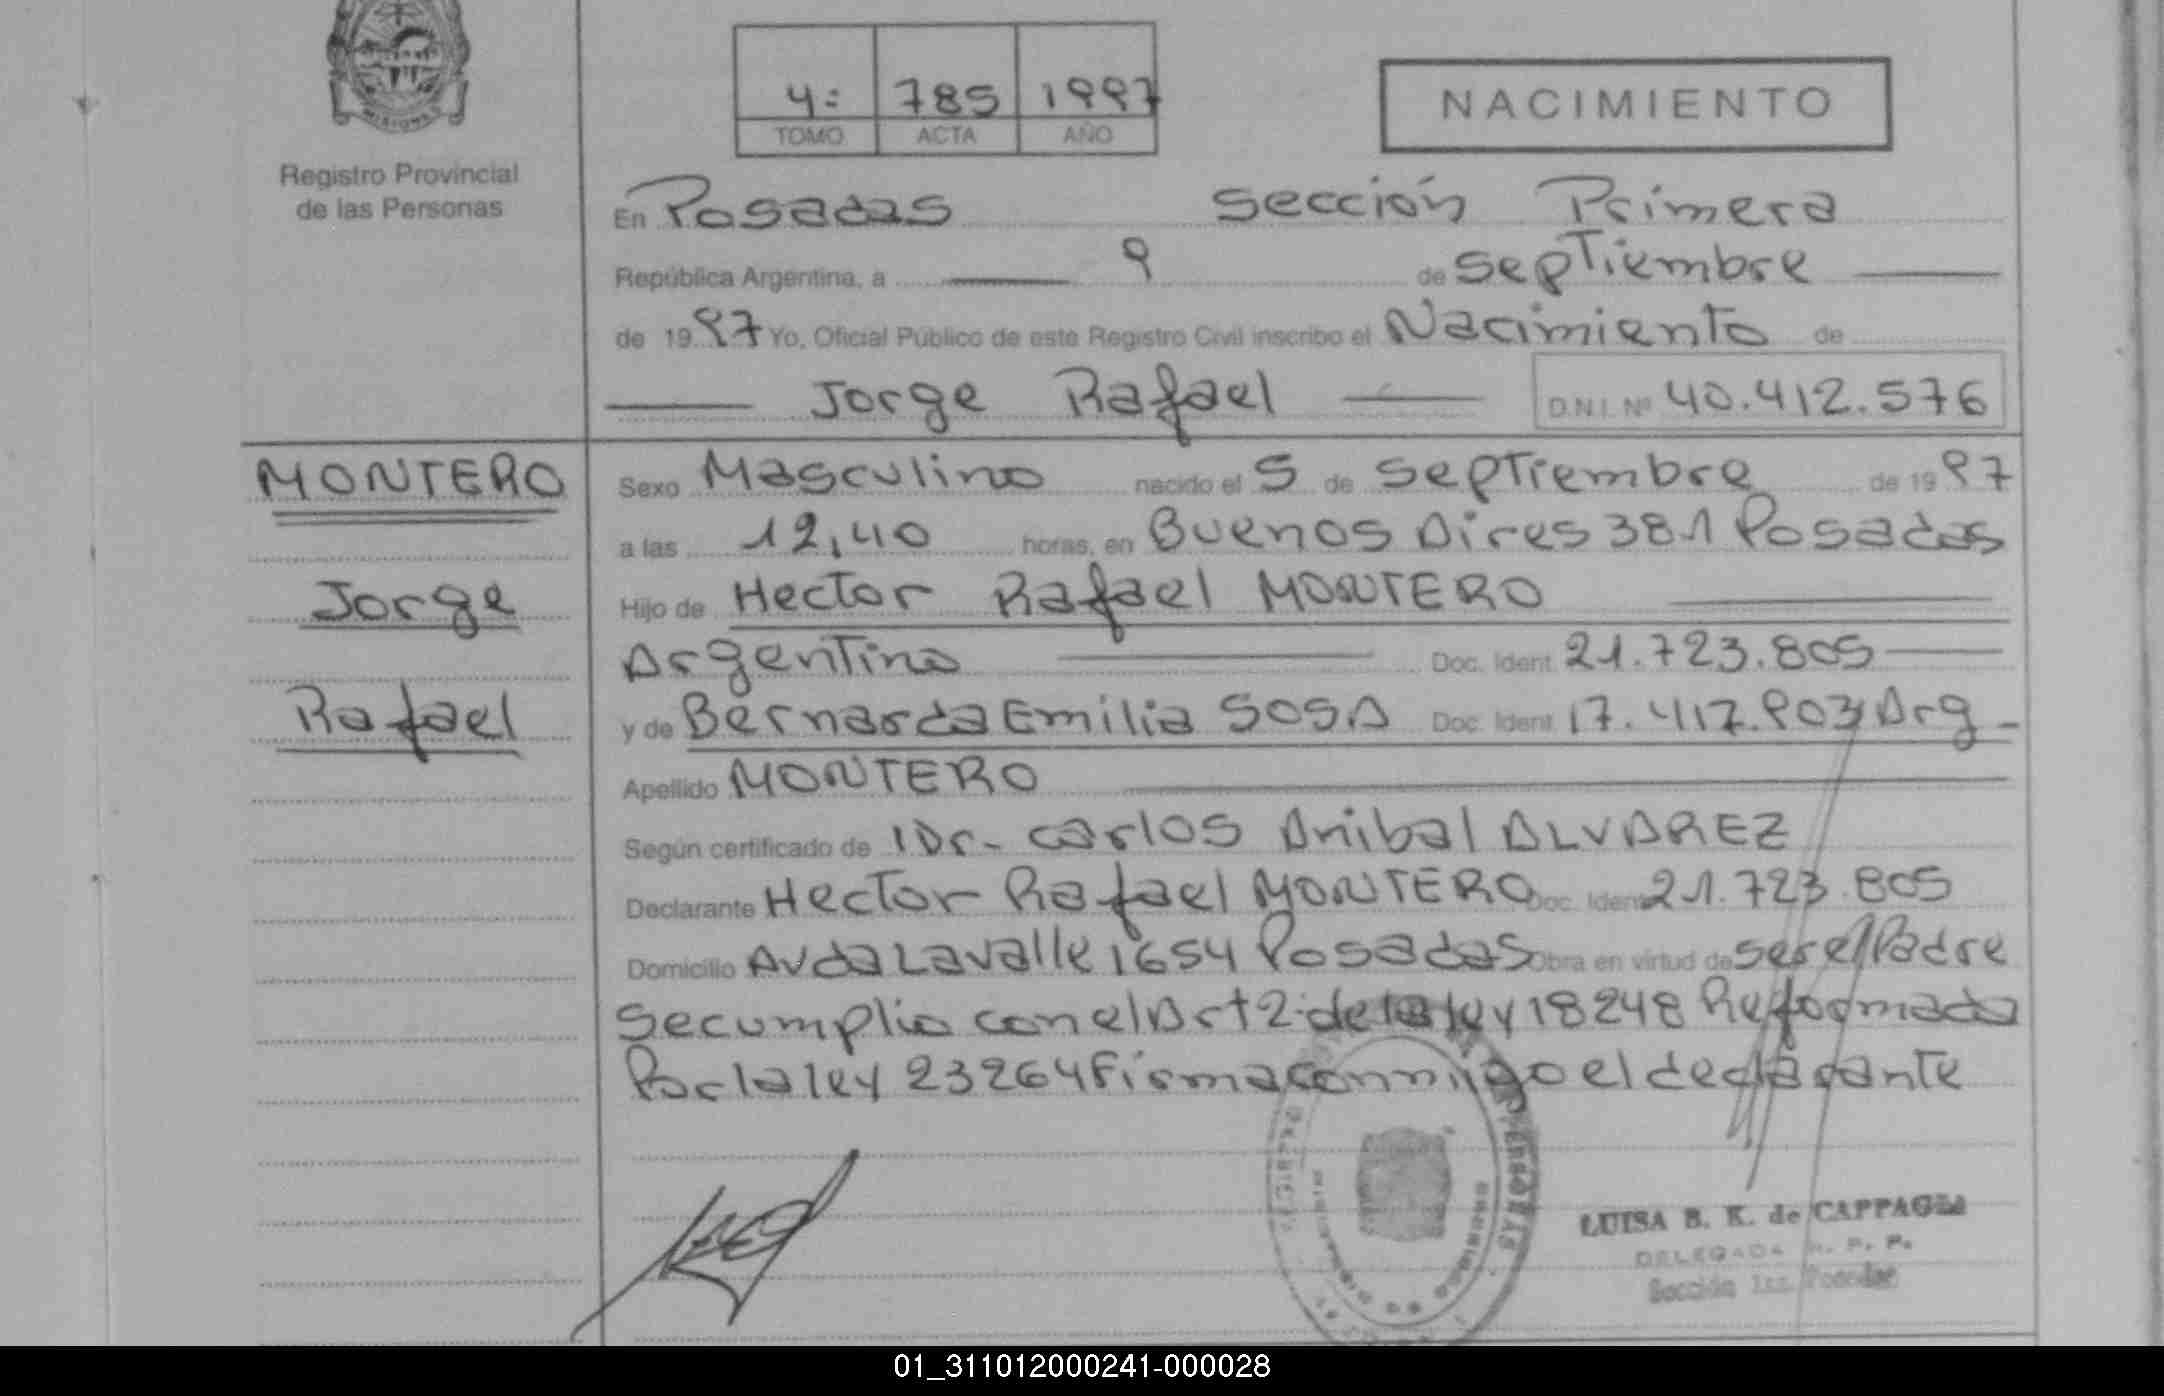 MISIONES
Registro Provincial
de las Personas
4: 785 1997
TOMO ACTA AÑO
NACIMIENTO
En Posadas sección Primera
República Argentina, a 9 de septiembre
de 1997 Yo, Oficial Público de este Registro Civil inscribo el Nacimiento de
Jorge Rafael D.N.I. Nº 40.412.576
MONTERO
Jorge
Rafael
Sexo Masculino nacido el 5 de septiembre de 1997
a las 12,40 horas, en Buenos Aires 381 Posadas
Hijo de Hector Rafael MONTERO
Argentino Doc. Ident. 21.723.805
y de Bernarda Emilia SOSA Doc. Ident. 17.417.903 Arg
Apellido MONTERO
Según certificado de Dr. Carlos Anibal ALVAREZ
Declarante Hector Rafael MONTERO Doc. Ident 21.723.805
Domicilio Avda Lavalle 1654 Posadas Obra en virtud de ser el Padre
se cumplio con el Art 2: de la ley 18248 Reformada
Por la ley 23264 firma conmigo el declarante
LUISA B. K. de CAPPAGLI
DELEGADA R. P. P.
Sección 1ra. Posadas
01_311012000241-000028